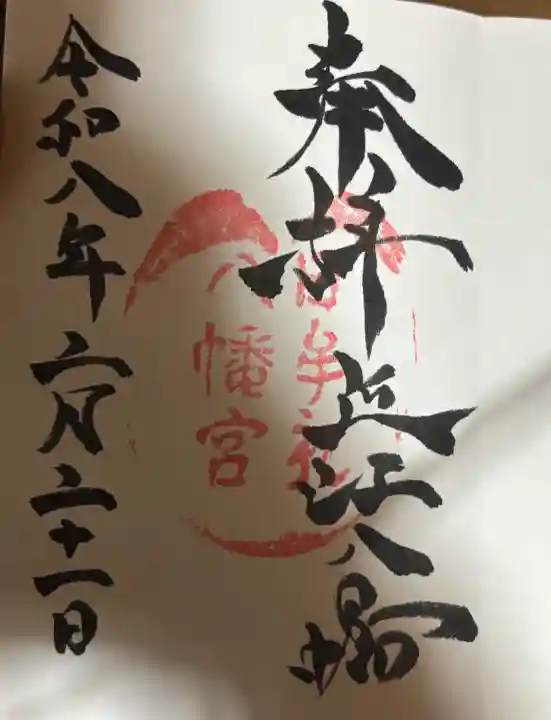 奉拝 近江八幡
日牟禮
八幡宮
令和八年二月二十一日